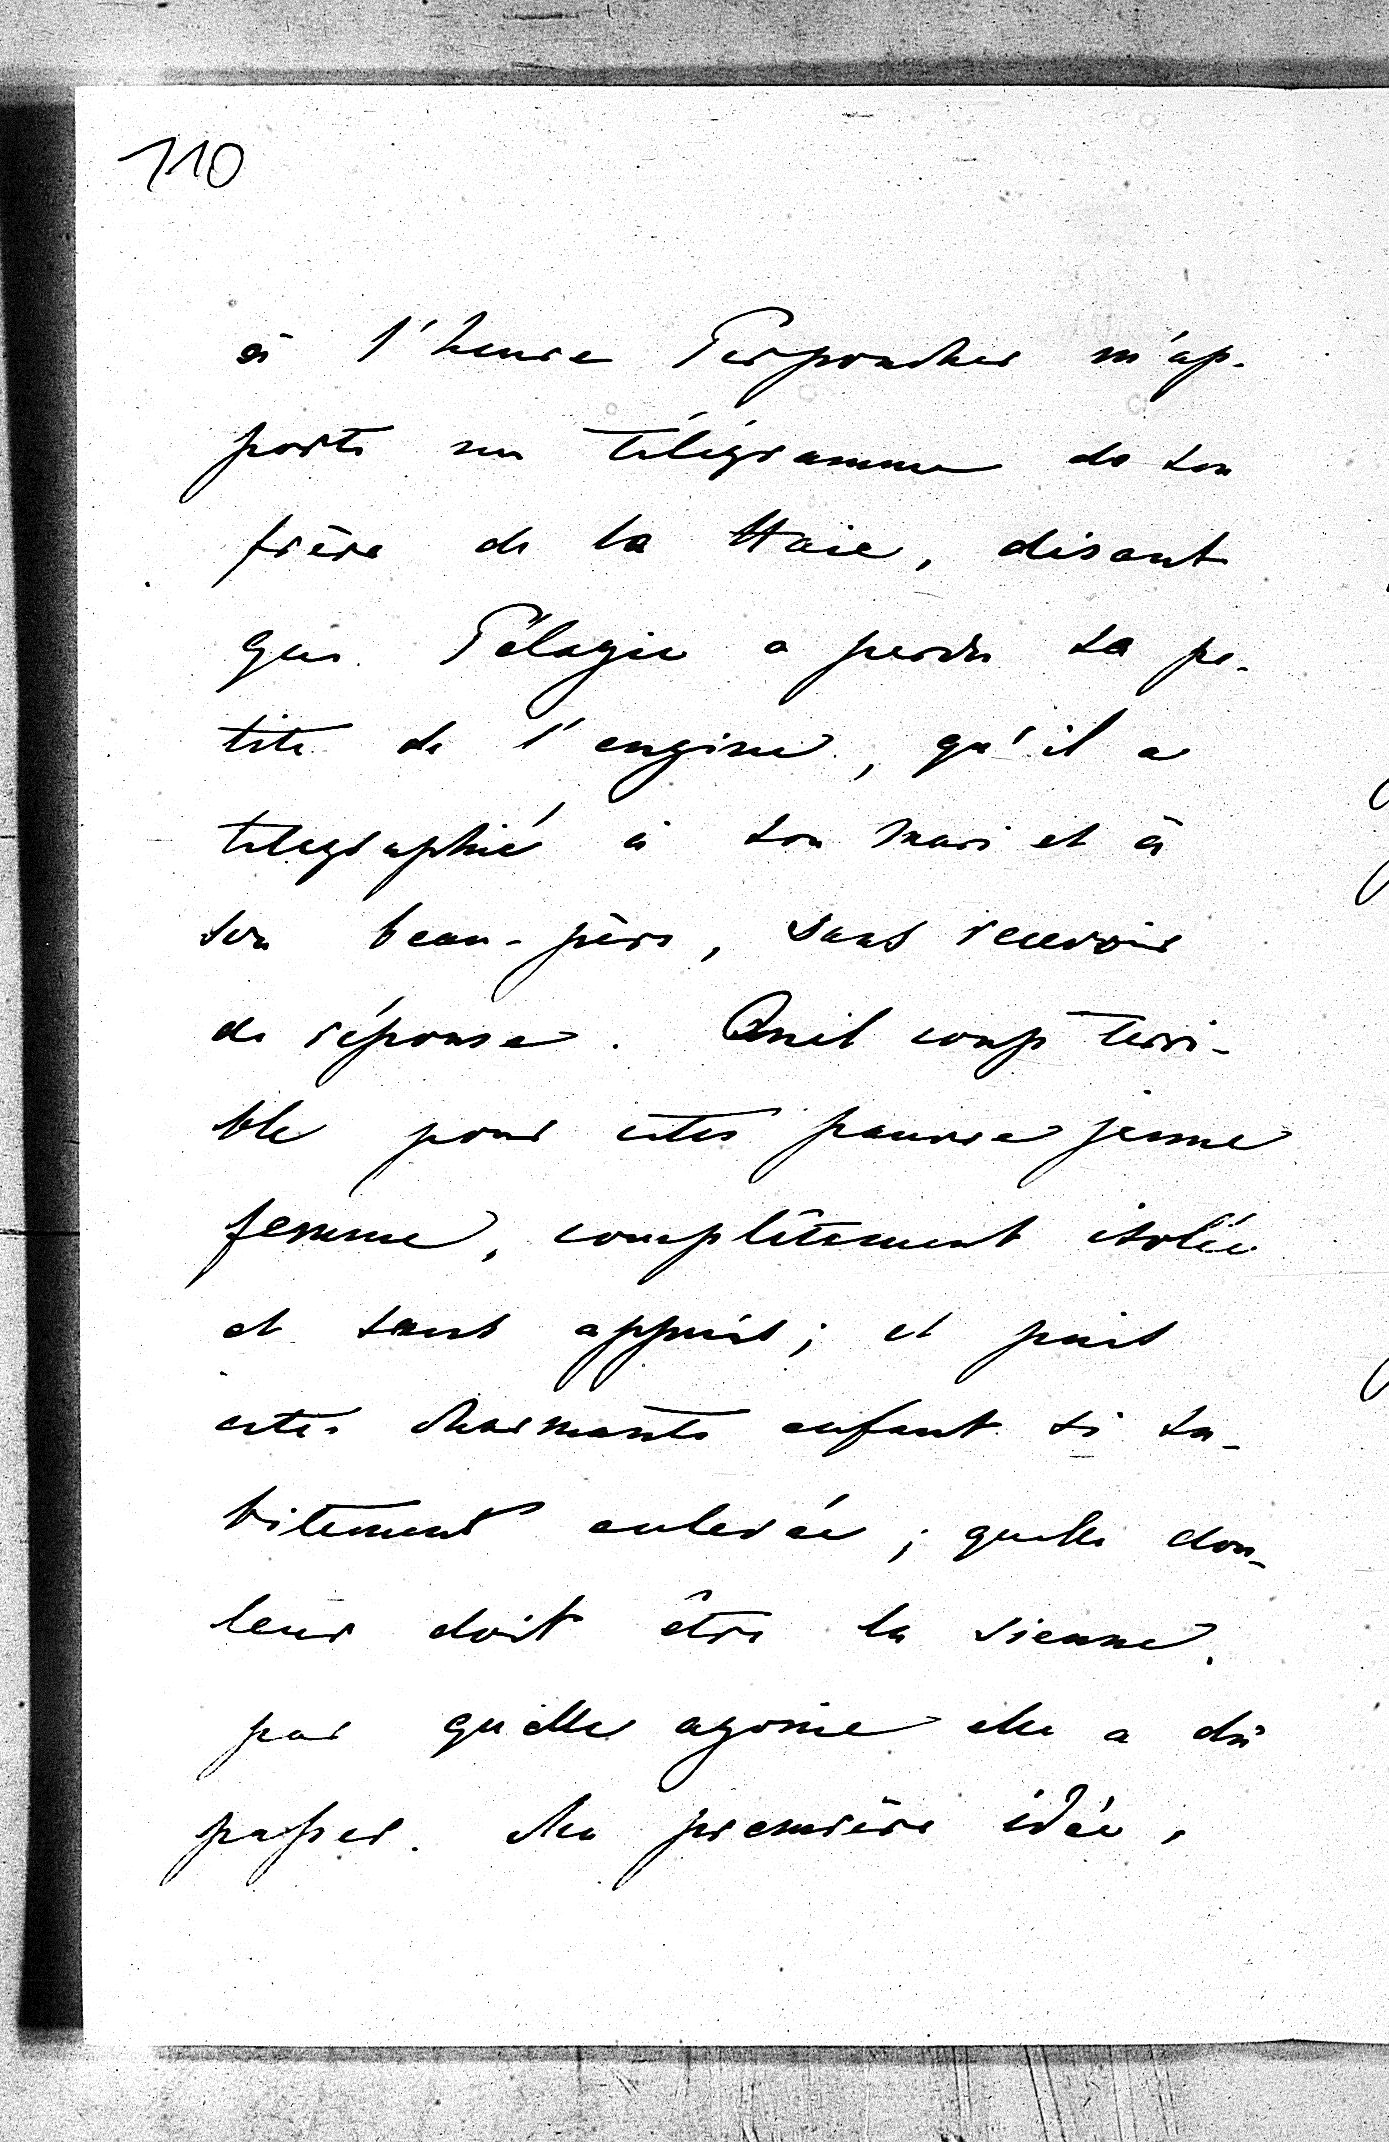 110
à l'heure Perponcher m'ap-
porte un télégramme de son
frère de la Haie, disant
que Pélagie a perdu sa pe-
tite de l'angine, qu'il a
telegraphié à son mari et à
son beau-père, sans recevoir
de réponse. Quel coup terri-
ble pour cette pauvre jeune
femme, complêtement isolée
et sans appuis; et puis
cette charmante enfant si su-
bitement enlevée; quelle dou-
leur doit être la sienne.
par quelle agonie elle a dû
passer. Ma première idée,